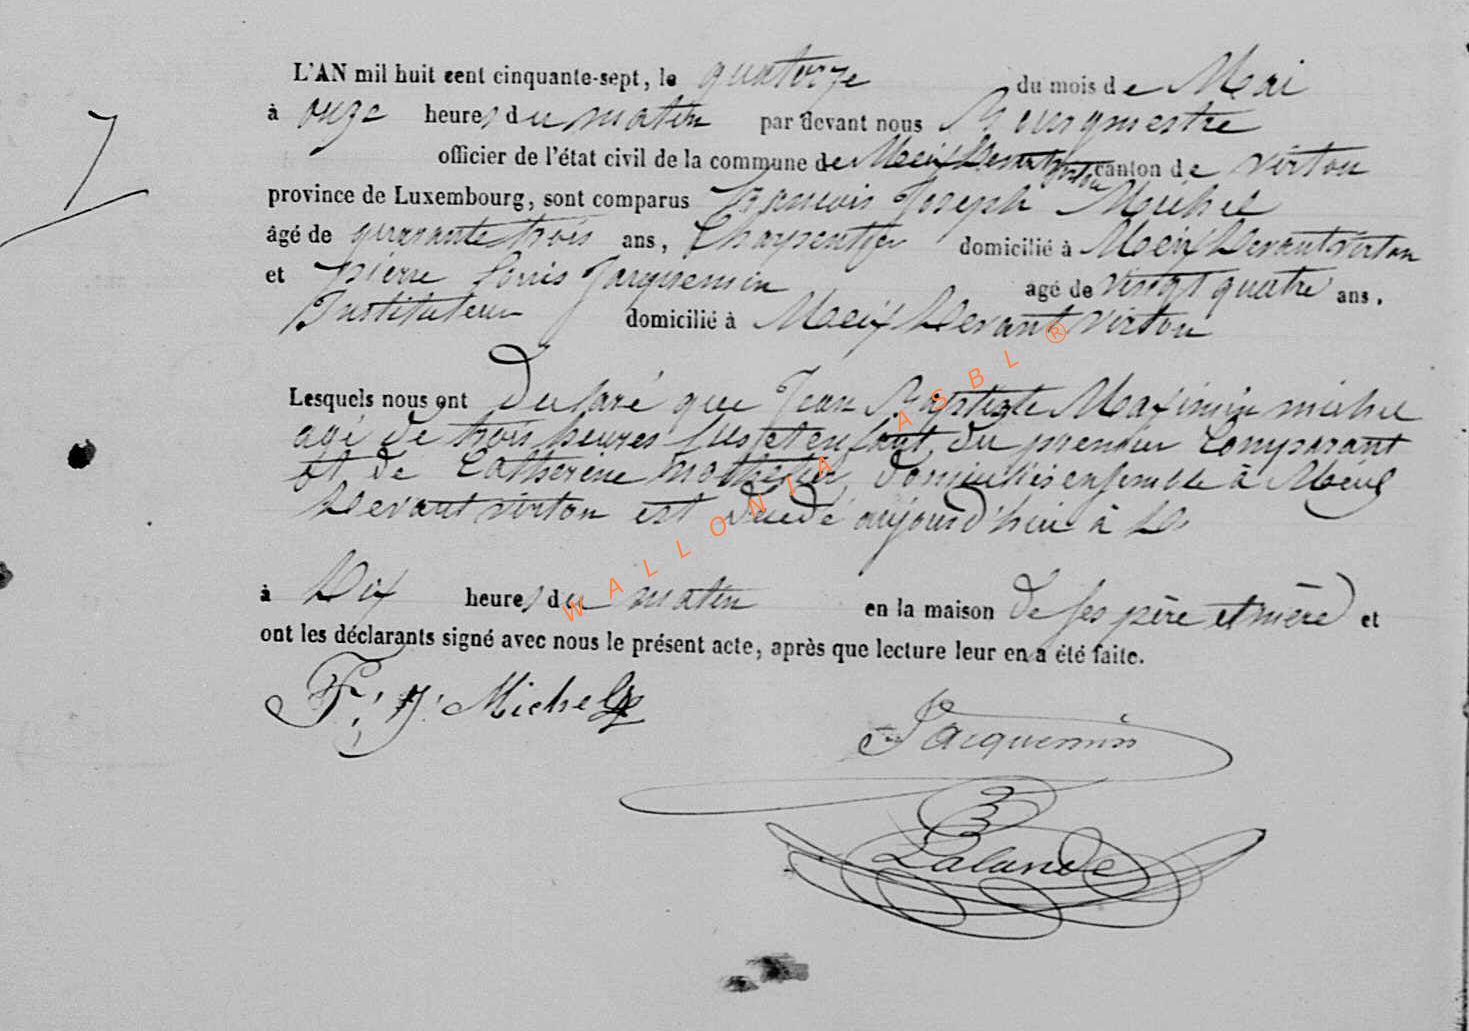 L'AN mil huit cent cinquante-sept, le quatorze du mois de Mai
à onze heures du matin par devant nous Bourgmestre
officier de l'état civil de la commune de Meix Devant Virton canton de Virton
province de Luxembourg, sont comparus François Joseph Michel
âgé de quarante trois ans, Charpentier domicilié à Meix Devant Virton
et pierre Louis Jacquemin agé de vingt quatre ans.
Instituteur domicilié à Meix Devant Virton
Lesquels nous ont Déclaré que Jean Baptiste Maximin michel
agé de trois heures du premier Comparant
et de Catherine domiciliés ensemble à Meix
Devant virton est décédé aujourd'hui à
à Dix heures du matin en la maison de ses père et mère et
ont les déclarants signé avec nous le présent acte, après que lecture leur en a été faite.
F. J. Michel
Jacquemin
Lalande
7
WALLONIA ASBL ®